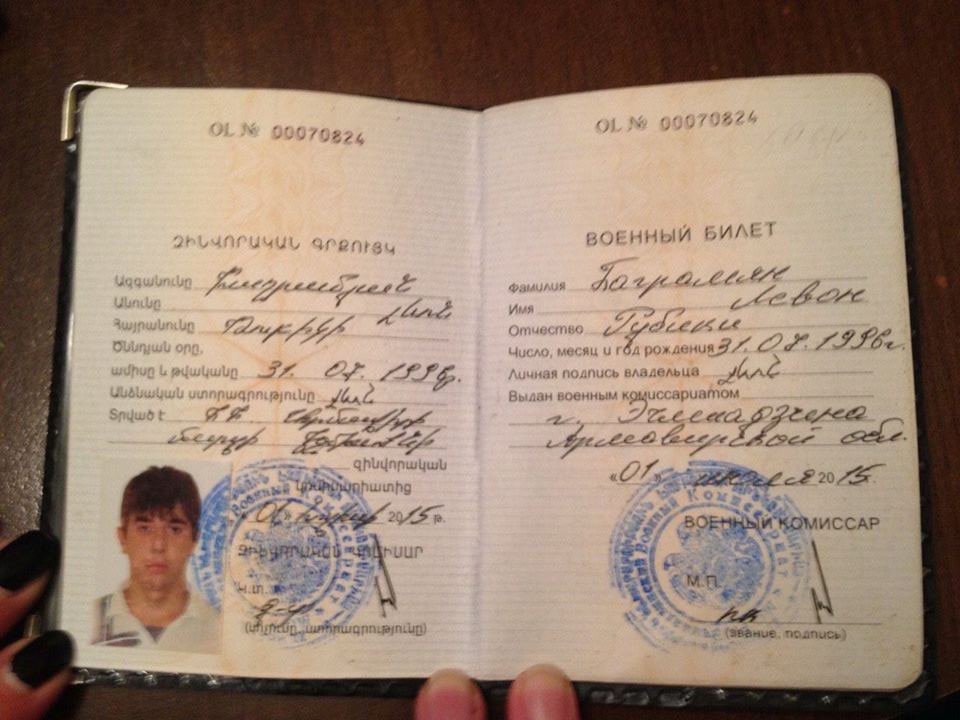 OL № 00070824
ԶԻՆՎՈՐԱԿԱՆ ԳՐՔՈՒՅԿ
Ազգանունը Բաղրամյան
Անունը Լևոն
Հայրանունը Ռուբիկի
Ծննդյան օրը,
ամիսը և թվականը 31. 07. 1996թ.
Անձնական ստորագրությունը
Տրված է
զինվորական
կոմիսարիատից
«01» 2015 թ.
ԶԻՆՎՈՐԱԿԱՆ ԿՈՄԻՍԱՐ
Կ.Տ.
(կոչումը, ստորագրությունը)
OL № 00070824
ВОЕННЫЙ БИЛЕТ
Фамилия Баграмян
Имя Левон
Отчество Рубики
Число, месяц и год рождения 31.07.1996г.
Личная подпись владельца
Выдан военным комиссариатом
г. Эчмиадзина
Армавирской обл.
«01» июля 2015.
ВОЕННЫЙ КОМИССАР
М.П.
(звание, подпись)